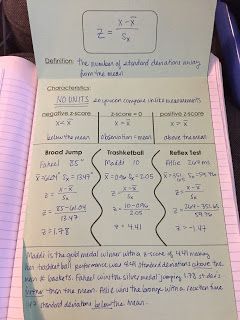 z = x-x̄ / Sx
Definition: the number of standard deviations away
from the mean
Characteristics:
NO UNITS so you can compare unlike measurements
negative z-score z-score = 0 positive z-score
x < x̄ x = x̄ x > x̄
below the mean observation = mean above the mean
Broad Jump Trashketball Reflex Test
85" Maddi 10 Allie 264 ms
z = x-x̄ / Sx z = x-x̄ / Sx z = x-x̄ / Sx
z = 85-61.04 / 13.47 z = 10-0.96 / 2.05 z = 264-351.65 / 59.76
z = 1.78 z = 4.41 z = -1.47
Maddi is the gold medal winner with a z-score of 4.41 meaning
her trashketball performance was 4.41 standard deviations above the
mean # baskets. wins the silver medal jumping 1.78 st. dev's
than the mean. Allie wins the bronze with a reaction time
1.47 standard deviations below the mean.